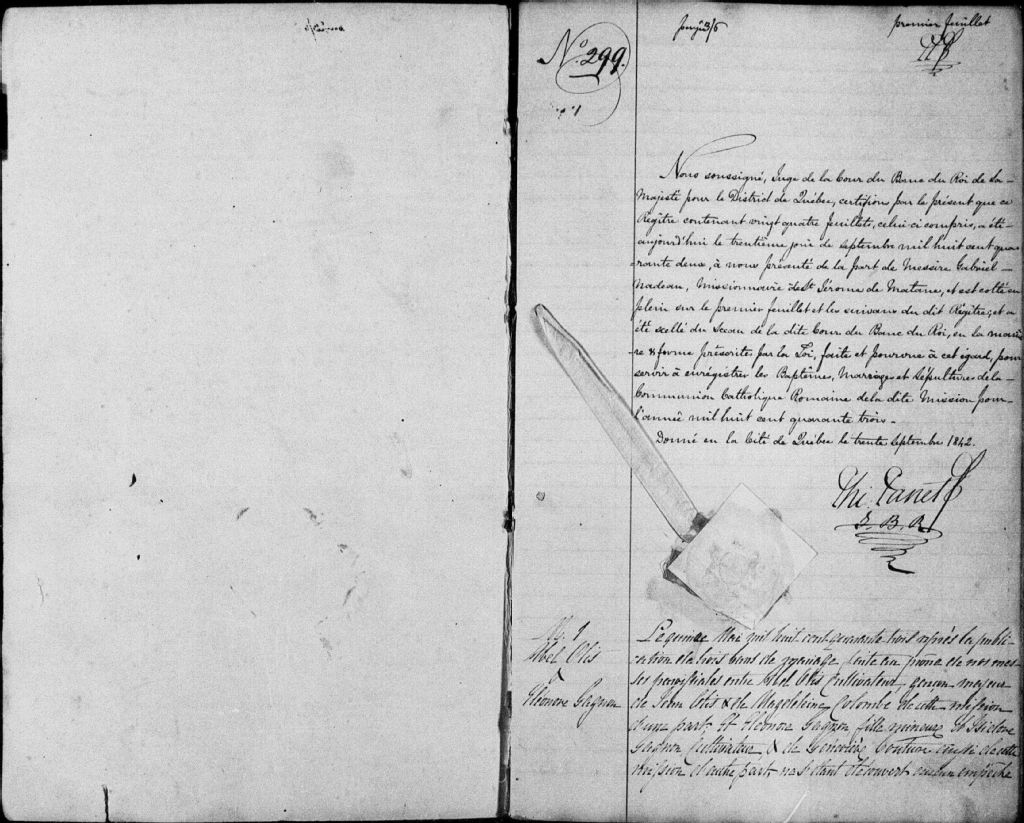 premier feuillet
No. 299.
Nous soussigné, Juge de la Cour du Banc du Roi de Sa
Majesté pour le District de Québec, certifions par le présent que ce
Régître contenant vingt quatre feuillets, celui-ci compris, a été
aujourd'hui le trentième jour de septembre mil huit cent qua
-rante deux, à nous présenté de la part de Messire Gabriel
Nadeau, Missionnaire de St Jérome de Matane, et est cotté en
plein sur le premier feuillet et les suivans du dit Régître; et a
été scellé du Sceau de la dite Cour du Banc du Roi, en la maniè
-re & forme préscrites par la Loi, faite et pourvue à cet égard, pour
servir à enrégistrer les Baptêmes, Mariages et Sépultures de la
Communion Catholique Romaine de la dite Mission pour
l'année mil huit cent quarante trois.
Donné en la Cité de Québec le trente septembre 1842.
Phi. Panet
J. B. R.
M. 1
Abel Otis
&
Eléonore Gagnon
Le quinze Mai mil huit cent quarante trois après la publi-
cation de trois bans de mariage faite au prône de nos mes-
ses paroissiales entre Abel Otis Cultivateur, garçon majeur
de Jean Otis & de Magdeleine Colombe de cette mission
d'une part; Et Eléonore Gagnon, fille mineure d'Isidore
Gagnon Cultivateur & de Geneviève Couture aussi de cette
mission d'autre part, ne s'étant découvert aucun empêche